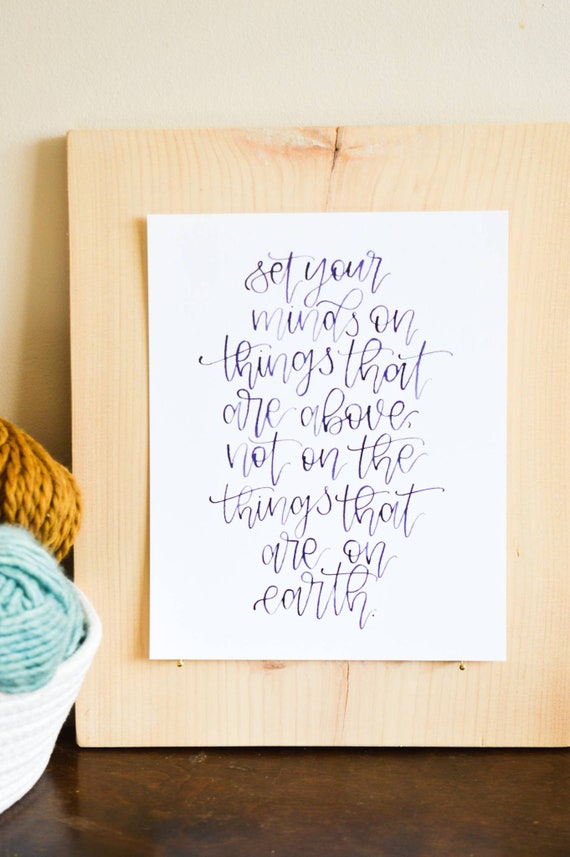 set your
minds on
things that
are above,
not on the
things that
are on
earth.